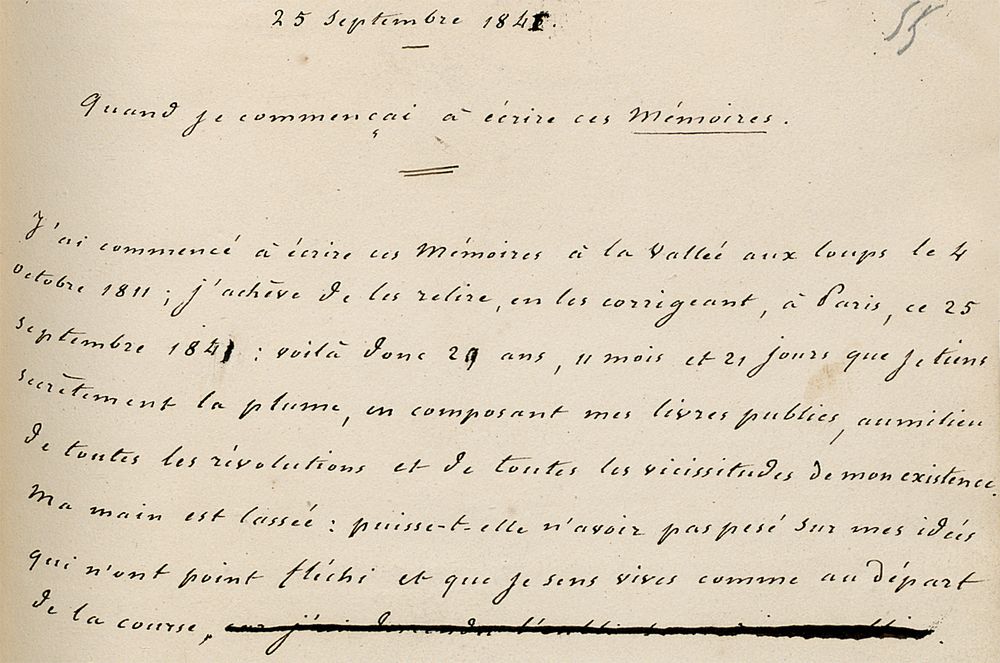 25 Septembre 1841.
55
Quand je commençai à écrire ces Mémoires.
J'ai commencé à écrire ces Mémoires à la Vallée aux loups le 4
octobre 1811 ; j'achève de les relire, en les corrigeant, à Paris, ce 25
septembre 1841 : voilà donc 29 ans, 11 mois et 21 jours que je tiens
secrètement la plume, en composant mes livres publics, au milieu
de toutes les révolutions et de toutes les vicissitudes de mon existence.
Ma main est lassée : puisse-t-elle n'avoir pas pesé sur mes idées
qui n'ont point fléchi et que je sens vives comme au départ
de la course,